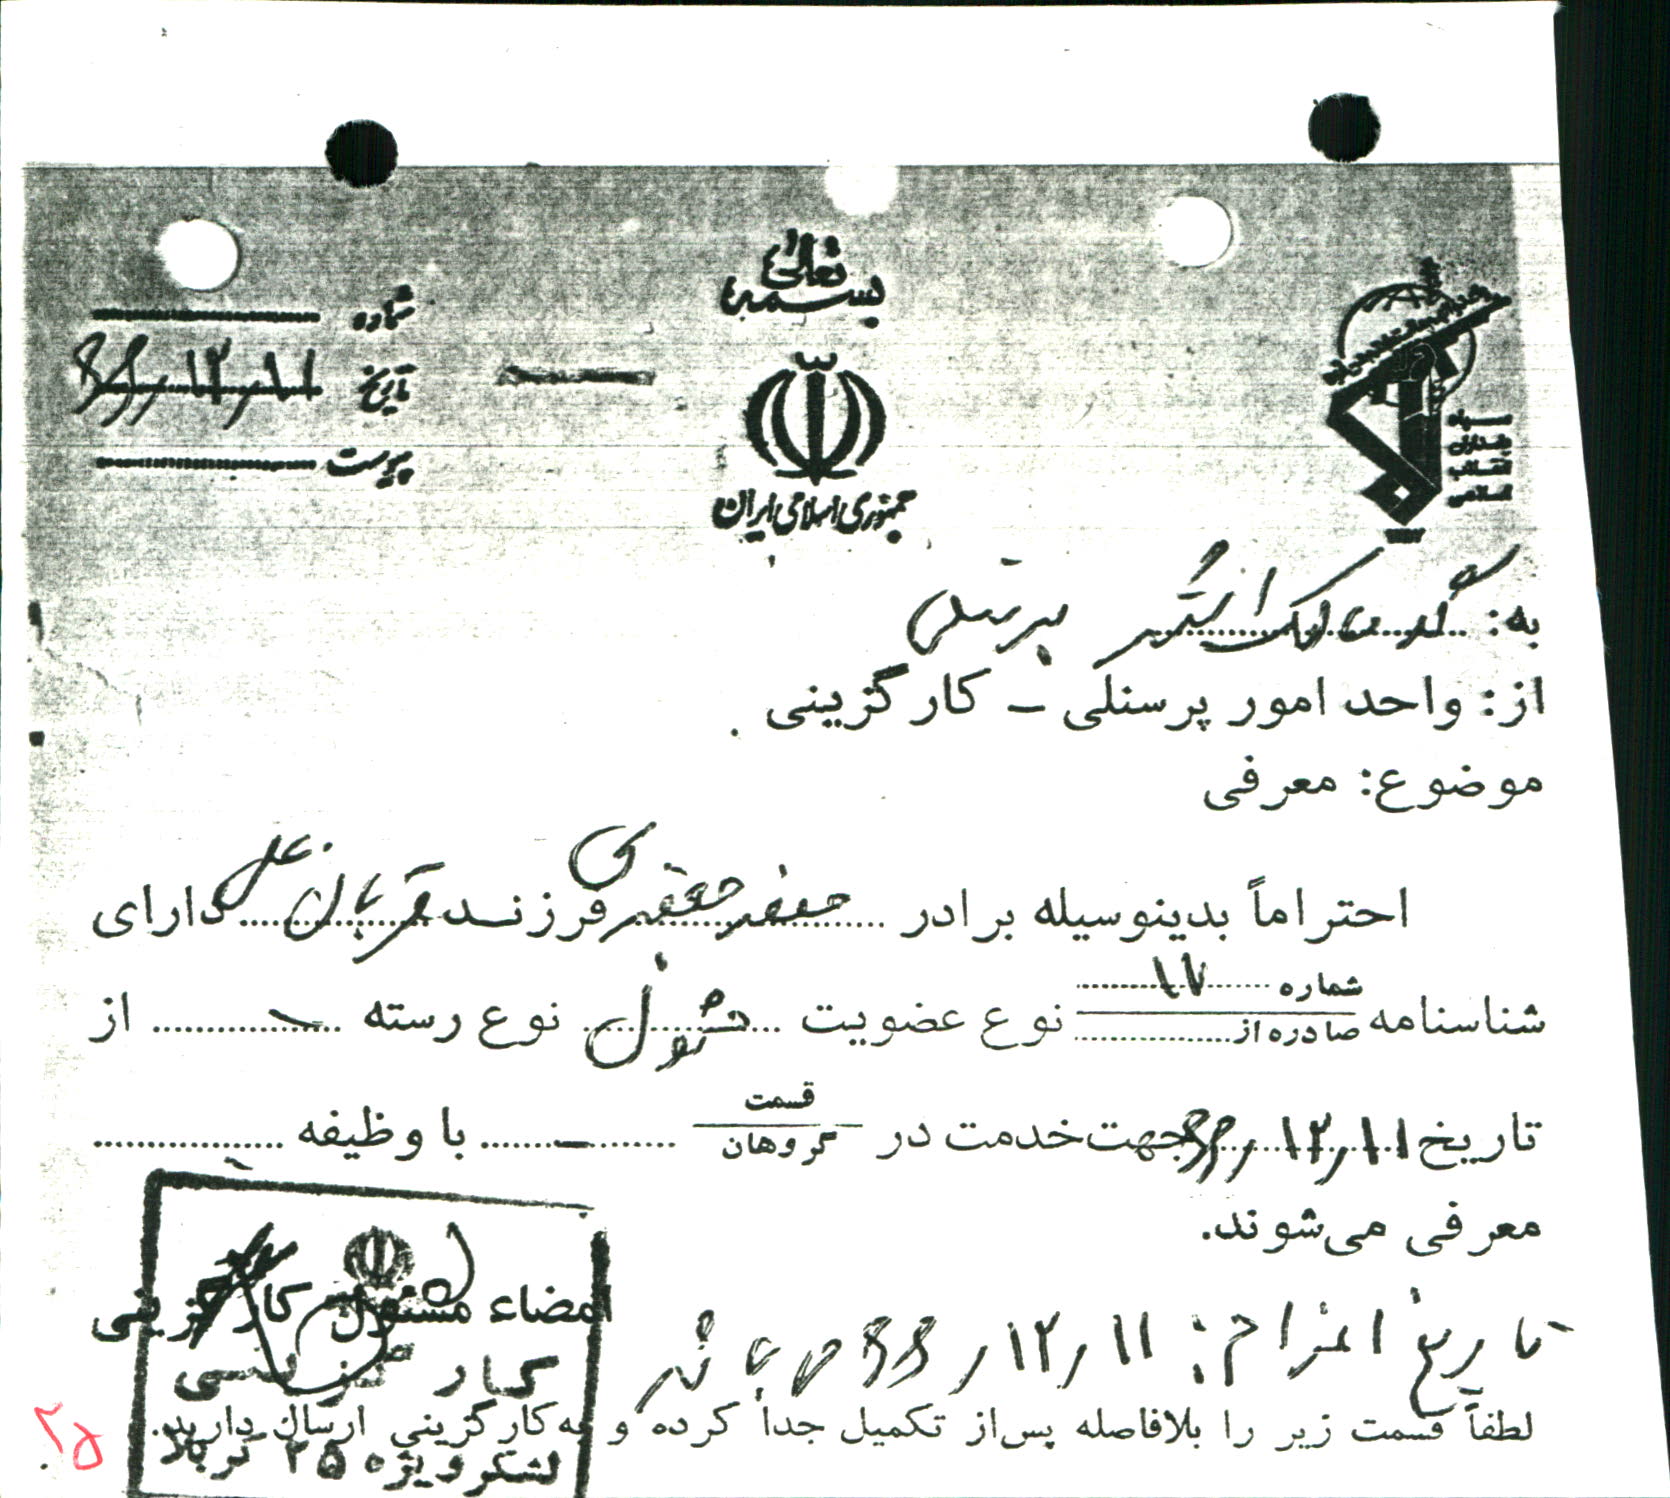 بسمه تعالی
جمهوری اسلامی ایران
شماره
تاریخ ۱۱ر۱۲ر۶۶
پیوست
سپاه پاسداران انقلاب اسلامی
به: پرسنلی
از: واحد امور پرسنلی - کارگزینی
موضوع: معرفی
احتراماً بدینوسیله برادر جعفر جعفری فرزند قربان علی دارای
شناسنامه شماره ۱۷ صادره از نوع عضویت نوع رسته از
تاریخ ۱۱ر۱۲ر۶۶ جهت خدمت در قسمت گروهان با وظیفه
معرفی می‌شوند.
تاریخ اعزام: ۱۱ر۱۲ر۶۶ می باشد
امضاء مسئول کارگزینی
کارگزینی
لطفاً قسمت زیر را بلافاصله پس‌از تکمیل جدا کرده و به‌کارگزینی ارسال دارید.
لشکر ویژه ۲۵ کربلا
۲۵